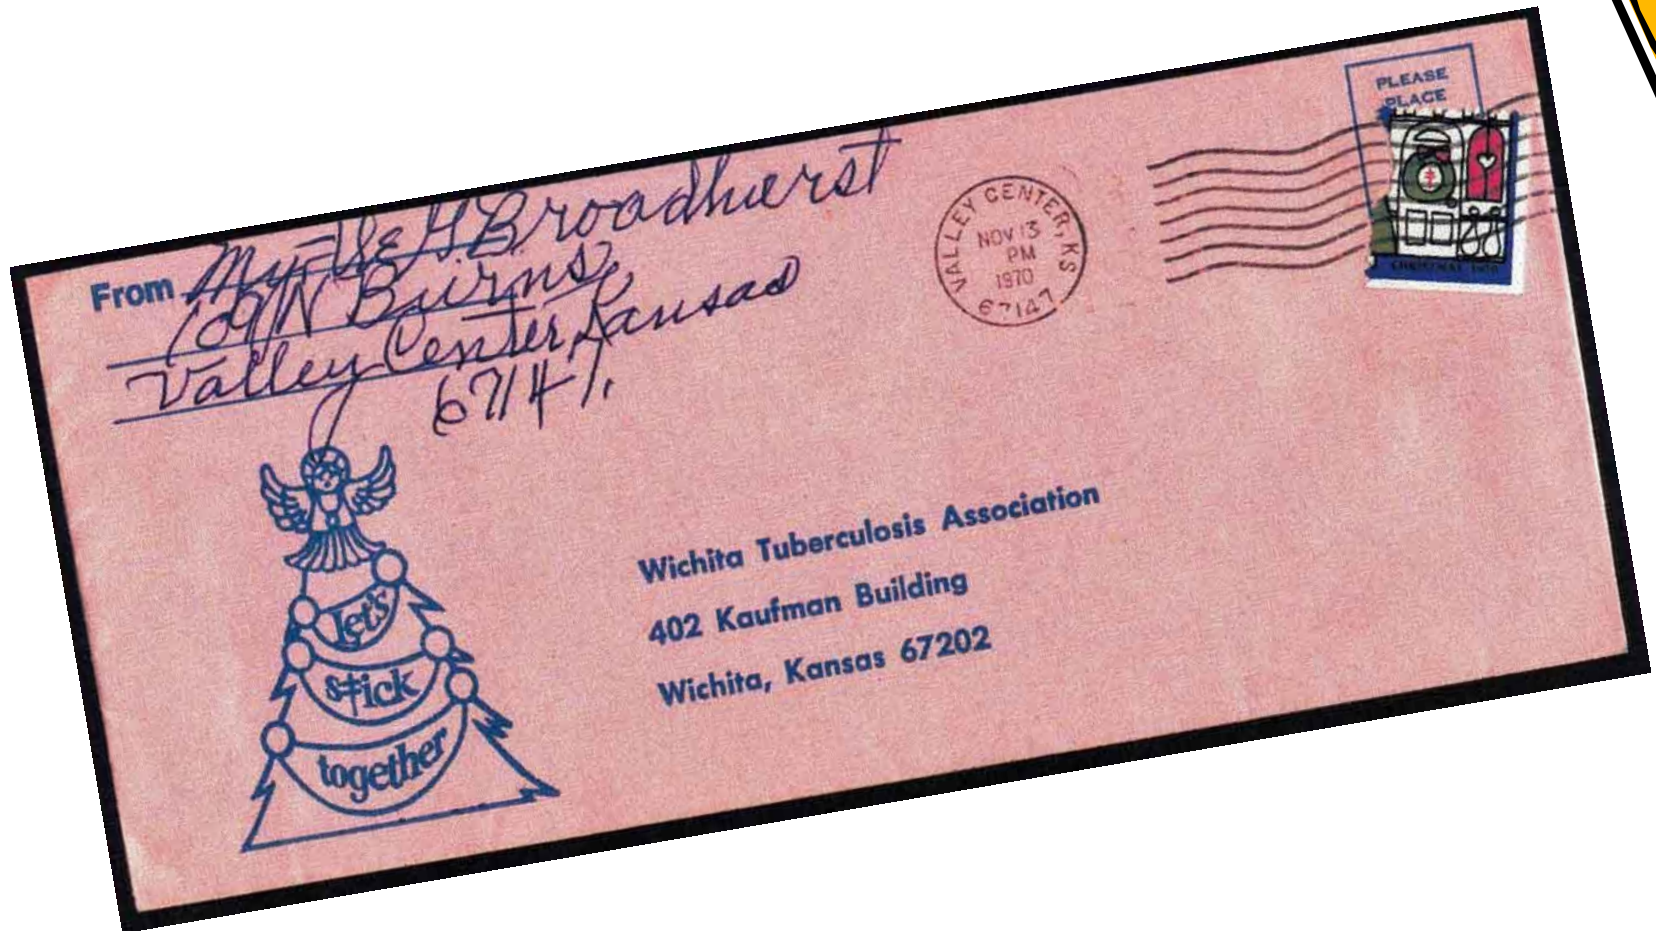 From Myrtle G. Broadhurst
109 N Burns,
Valley Center, Kansas
67147.
VALLEY CENTER, KS
NOV 13
PM
1970
67147
PLEASE
PLACE
CHRISTMAS 1970
Wichita Tuberculosis Association
402 Kaufman Building
Wichita, Kansas 67202
let's
stick
together